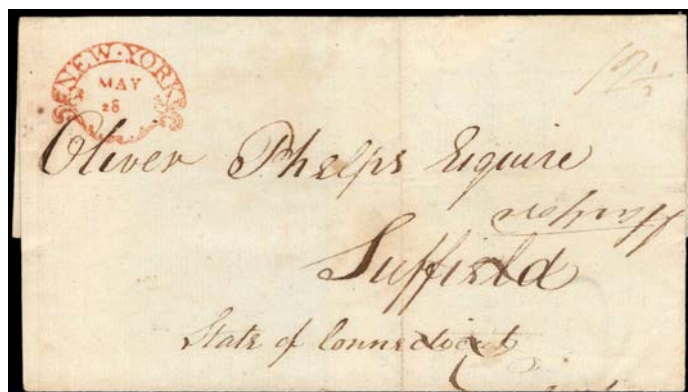 NEW·YORK
MAY
28
12½
Oliver Phelps Esquire
Suffield
State of Connecticut